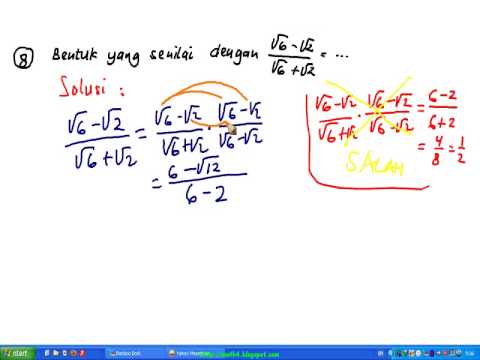 ⑧ Bentuk yang senilai dengan (√6-√2)/(√6+√2) = ...
Solusi :
(√6-√2)/(√6+√2) = (√6-√2)/(√6+√2) · (√6-√2)/(√6-√2)
= (6-√12)/(6-2)
(√6-√2)/(√6+√2) · (√6-√2)/(√6-√2) = (6-2)/(6+2)
= 4/8 = 1/2
SALAH
start